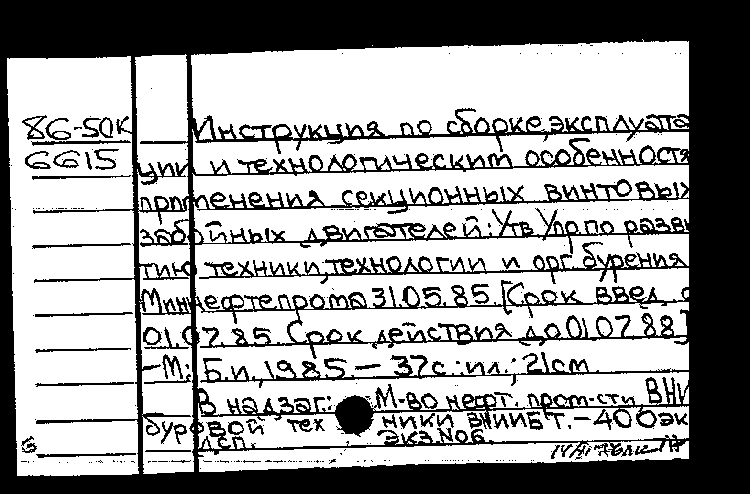 86-50К Инструкция по сборке, эксплуата
6615 ции и технологическим особенностя
применения секционных винтовых
забойных двигателей: Утв Упр по разви
тию техники, технологии и орг. бурения
Миннефтепрома 31.05.85. [Срок введ. с
01.07.85. Срок действия до 01.07.88]
-М.: Б.и., 1985 — 37с.: ил.; 21см.
В надзаг.: М-во нефт. пром-сти, ВНИ
буровой тех ники ВНИИБТ. - 400 эк
Дсп. Экз. №6.
6